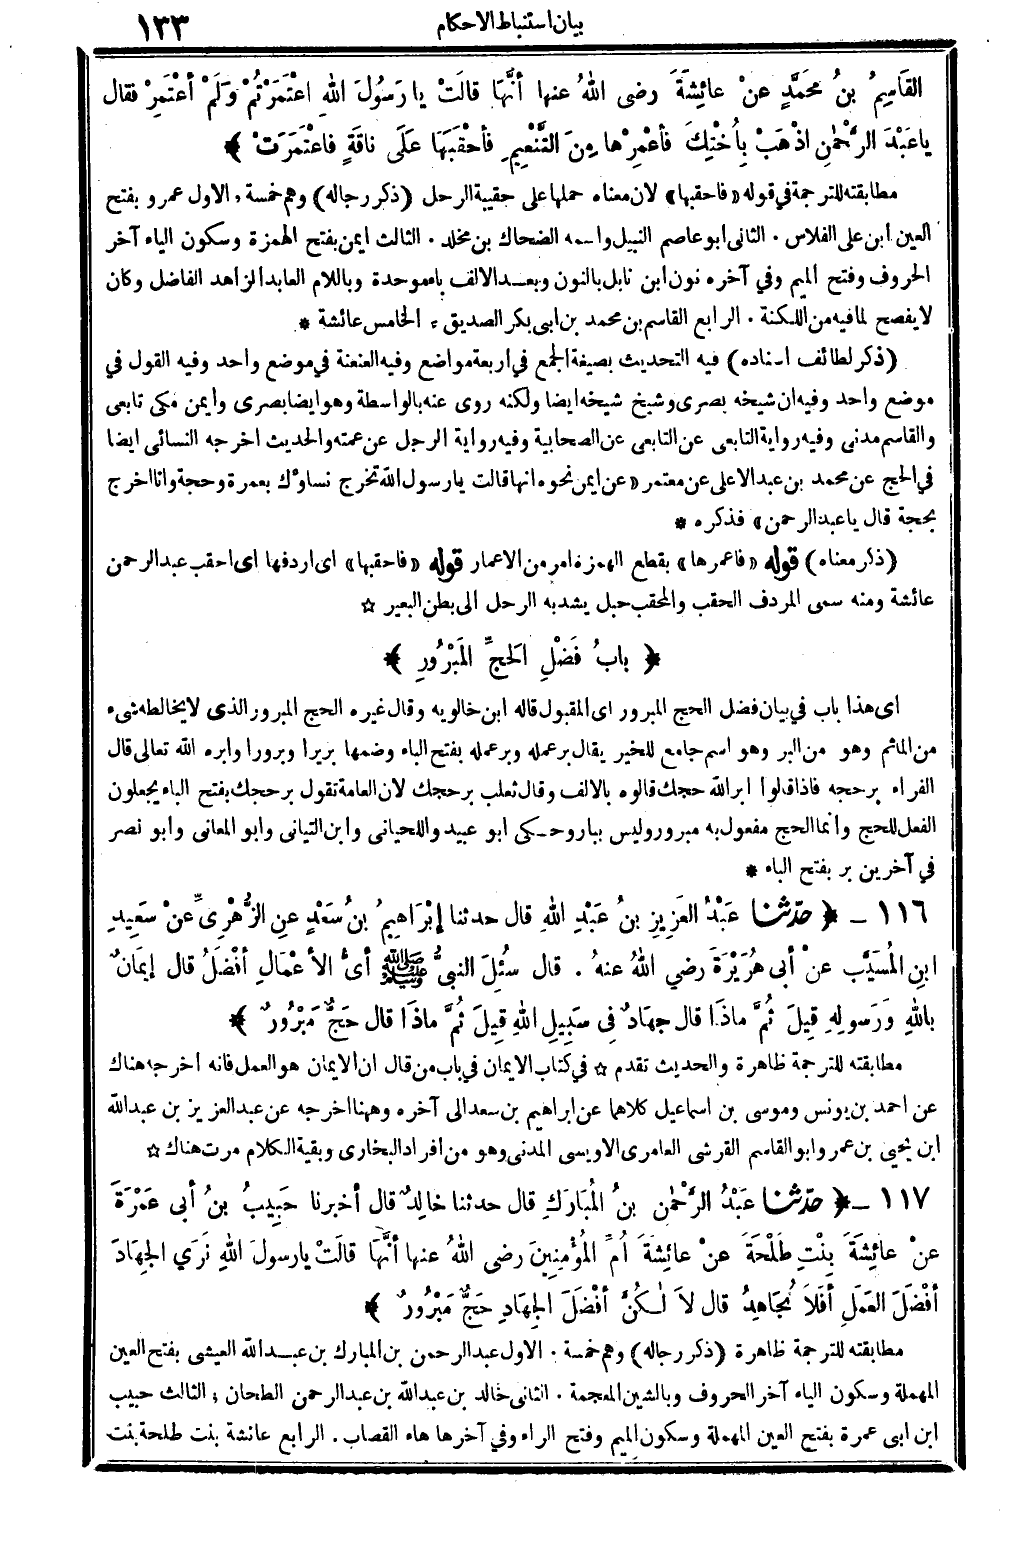 بيان استنباط الاحكام
١٣٣
القَاسِمُ بنُ مُحَمَّدٍ عنْ عائِشَةَ رضى اللهُ عنها أنَّها قالَتْ يا رَسُولَ اللهِ اعْتَمَرْتُمْ ولَمْ أعْتَمِرْ فقال
ياعَبْدَ الرَّحْمٰنِ اذْهَبْ بِأُخْتِكَ فأعْمِرْها مِنَ التَّنْعِيمِ فأحْقَبَهَا علَى ناقَةٍ فاعْتَمَرَتْ ﴾
مطابقته للترجمة فى قوله «فاحقبها» لان معناه حملها على حقيبة الرحل (ذكر رجاله) وهم خمسة. الاول عمرو بفتح
العين ابن على الفلاس . الثانى ابو عاصم النبيل واسمه الضحاك بن مخلد . الثالث ايمن بفتح الهمزة وسكون الياء آخر
الحروف وفتح الميم وفي آخره نون ابن نابل بالنون وبعد الالف باء موحدة وباللام العابد الزاهد الفاضل وكان
لا يفصح لما فيه من اللكنة . الرابع القاسم بن محمد بن ابى بكر الصديق . الخامس عائشة *
(ذكر لطائف اسناده) فيه التحديث بصيغة الجمع في اربعة مواضع وفيه العنعنة في موضع واحد وفيه القول في
موضع واحد وفيه ان شيخه بصرى وشيخ شيخه ايضا ولكنه روى عنه بالواسطة وهو ايضا بصرى وايمن مكى تابعى
والقاسم مدنى وفيه رواية التابعى عن التابعى عن الصحابية وفيه رواية الرجل عن عمته والحديث اخرجه النسائى ايضا
في الحج عن محمد بن عبد الاعلى عن معتمر «عن ايمن نحوه انها قالت يا رسول الله تخرج نساؤك بعمرة وحجة وانا اخرج
بحجة قال يا عبد الرحمن» فذكره *
(ذكر معناه) قوله «فاعمرها» بقطع الهمزة امر من الاعمار قوله «فاحقبها» اى اردفها اى احقب عبد الرحمن
عائشة ومنه سمى المردف الحقب والمحقب حبل يشد به الرحل الى بطن البعير ☆
﴿ بابُ فَضْلِ الحَجِّ المَبْرُورِ ﴾
اى هذا باب في بيان فضل الحج المبرور اى المقبول قاله ابن خالويه وقال غيره الحج المبرور الذى لا يخالطه شىء
من المائم وهو من البر وهو اسم جامع للخير يقال بر عمله وبر عمله بفتح الباء وضمها بريرا وبرورا وابره الله تعالى قال
الفراء بر حجه فاذا قالوا ابر الله حجك قالوه بالالف وقال ثعلب بر حجك لان العامة تقول بر حجك بفتح الباء يجعلون
الفعل للحج وانما الحج مفعول به مبرور وليس ببار وحكى ابو عبيد واللحيانى وابن التيانى وابو المعانى وابو نصر
في آخرين بر بفتح الباء *
١١٦ ــ ﴿ حدّثنا عَبْدُ العَزِيزِ بنُ عَبْدِ اللهِ قال حدثنا إبْرَاهِيمُ بنُ سَعْدٍ عنِ الزُّهْرِىِّ عنْ سَعِيدِ
ابنِ المُسَيَّبِ عنْ أبى هُرَيْرَةَ رضي اللهُ عنهُ . قال سُئِلَ النبىُّ ﷺ أىُّ الأعْمَالِ أفْضَلُ قال إيمَانٌ
باللهِ ورَسولِهِ قِيلَ ثُمَّ ماذَا قال جِهادٌ فِى سَبِيلِ اللهِ قِيلَ ثُمَّ ماذَا قال حَجٌّ مَبْرُورٌ ﴾
مطابقته للترجمة ظاهرة والحديث تقدم ☆ في كتاب الايمان في باب من قال ان الايمان هو العمل فانه اخرجه هناك
عن احمد بن يونس وموسى بن اسماعيل كلاهما عن ابراهيم بن سعد الى آخره وههنا اخرجه عن عبد العزيز بن عبد الله
ابن يحيى بن عمرو ابو القاسم القرشى العامرى الاويسى المدنى وهو من افراد البخارى وبقية الكلام مرت هناك ☆
١١٧ ــ ﴿ حدّثنا عَبْدُ الرَّحْمٰنِ بنُ المُبَارَكِ قال حدثنا خالِدٌ قال أخبرنا حَبِيبُ بنُ أبى عَمْرَةَ
عنْ عائِشَةَ بِنْتِ طَلْحَةَ عنْ عائِشَةَ أُمِّ المُؤْمِنِينَ رضى اللهُ عنها أنَّهَا قالَتْ يا رسولَ اللهِ نَرَي الجِهادَ
أفْضَلَ العَمَلِ أفَلاَ نُجَاهِدُ قال لاَ لٰكُنَّ أفْضَلَ الجِهَادِ حَجٌّ مَبْرُورٌ ﴾
مطابقته للترجمة ظاهرة (ذكر رجاله) وهم خمسة . الاول عبد الرحمن بن المبارك بن عبد الله العيشى بفتح العين
المهملة وسكون الياء آخر الحروف وبالشين المعجمة . الثانى خالد بن عبد الله بن عبد الرحمن الطحان . الثالث حبيب
ابن ابى عمرة بفتح العين المهملة وسكون الميم وفتح الراء وفي آخرها هاء القصاب . الرابع عائشة بنت طلحة بنت